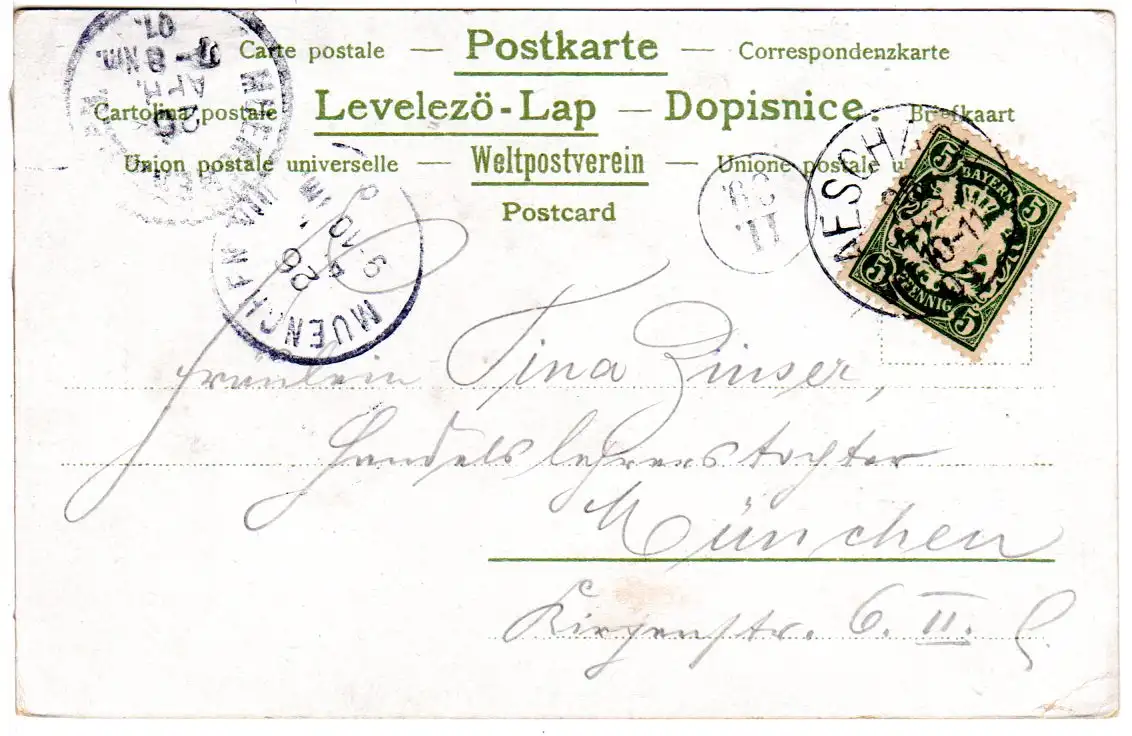 Carte postale — Postkarte — Correspondenzkarte
Cartolina postale Levelezö-Lap — Dopisnice. Briefkaart
Union postale universelle — Weltpostverein — Unione postale u
Postcard
MUENCHEN
26 APR.
7-8 NM.
01.
MUENCHEN
26 4
9-10 NM
II.
AESCHA
10-11
5 5
BAYERN
PFENNIG
5 5
Fräulein Tina Zinser,
Handelslehrerstochter
München
Kirchenstr. 6. II.